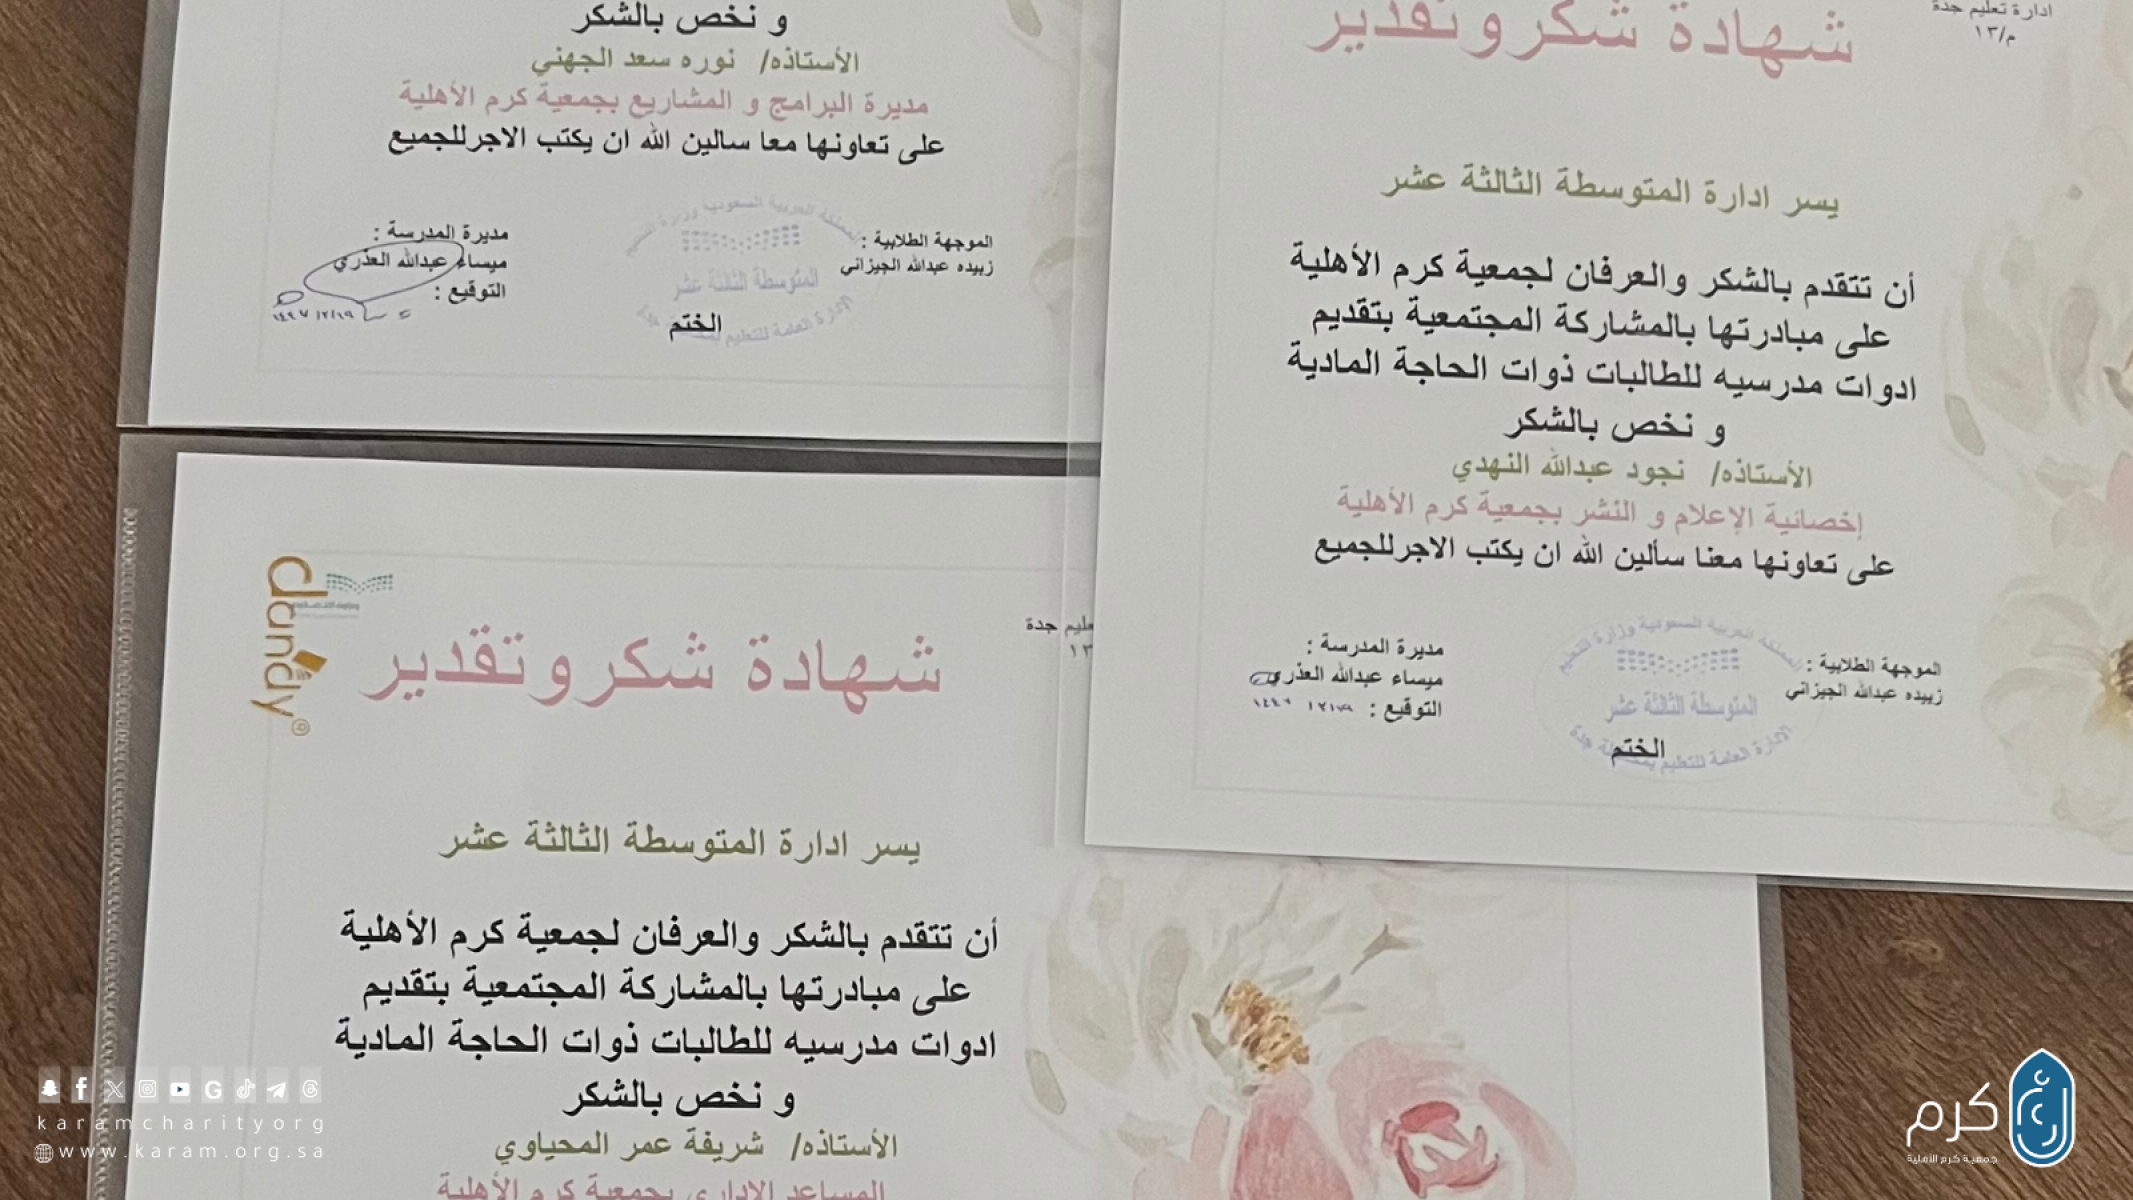 و نخص بالشكر
الأستاذه/ نوره سعد الجهني
مديرة البرامج و المشاريع بجمعية كرم الأهلية
على تعاونها معا سالين الله ان يكتب الاجرللجميع
الموجهة الطلابية :
زبيده عبدالله الجيزاني
مديرة المدرسة :
ميساء عبدالله العذري
التوقيع :
المملكة العربية السعودية وزارة التعليم
المتوسطة الثالثة عشر
الختم
ادارة تعليم جدة
م/١٣
شهادة شكر وتقدير
يسر ادارة المتوسطة الثالثة عشر
أن تتقدم بالشكر والعرفان لجمعية كرم الأهلية
على مبادرتها بالمشاركة المجتمعية بتقديم
ادوات مدرسيه للطالبات ذوات الحاجة المادية
و نخص بالشكر
الأستاذه/ نجود عبدالله النهدي
إخصائية الإعلام و النشر بجمعية كرم الأهلية
على تعاونها معنا سألين الله ان يكتب الاجرللجميع
الموجهة الطلابية :
زبيده عبدالله الجيزاني
مديرة المدرسة :
ميساء عبدالله العذري
التوقيع :
المملكة العربية السعودية وزارة التعليم
المتوسطة الثالثة عشر
الادارة العامة للتعليم بمحافظة جدة
الختم
dandy®
تعليم جدة
١٣
شهادة شكر وتقدير
يسر ادارة المتوسطة الثالثة عشر
أن تتقدم بالشكر والعرفان لجمعية كرم الأهلية
على مبادرتها بالمشاركة المجتمعية بتقديم
ادوات مدرسيه للطالبات ذوات الحاجة المادية
و نخص بالشكر
الأستاذه/ شريفة عمر المحياوي
المساعد الاداري بجمعية كرم الأهلية
karamcharityorg
www.karam.org.sa
كرم
جمعية كرم الأهلية